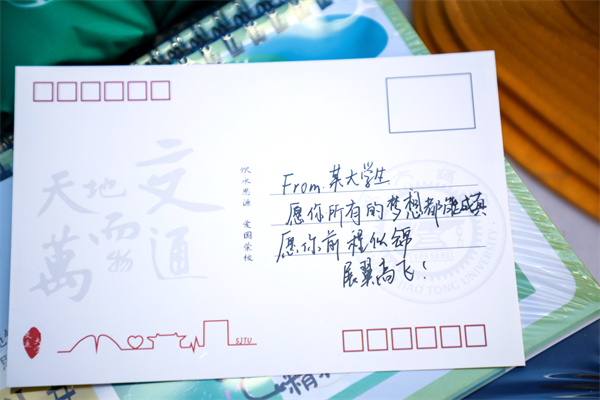 From 某大学生
愿你所有的梦想都能成真
愿你前程似锦
展翼高飞！
饮水思源 爱国荣校
天地
交
而萬物
通
SJTU
JIAO TONG UNIVERSITY